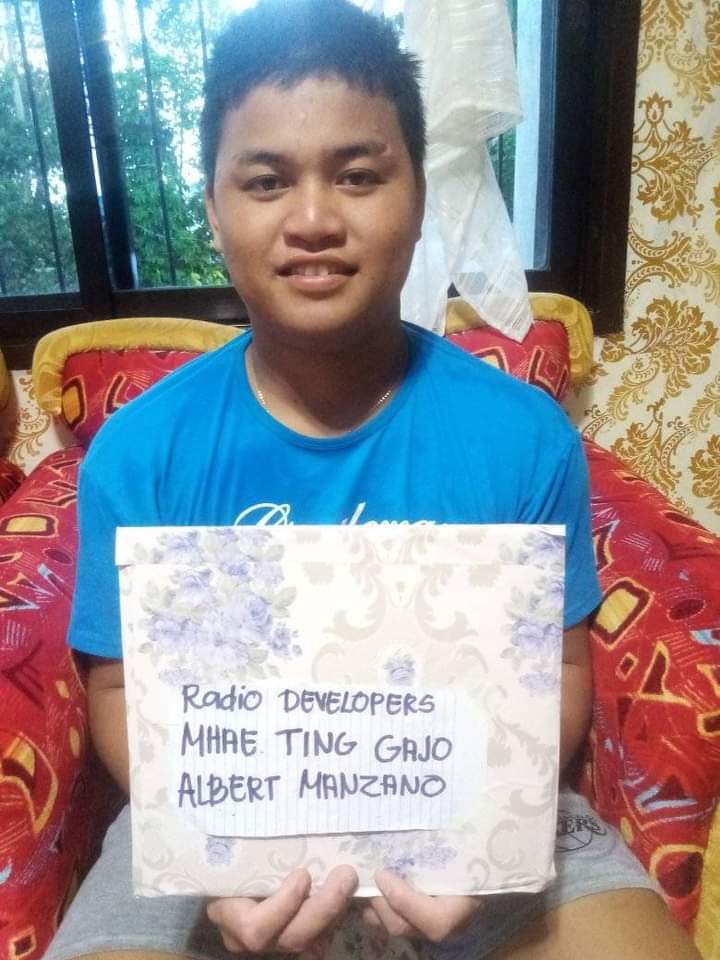 Radio DEVELOPERS
MHAE TING GAJO
ALBERT MANZANO